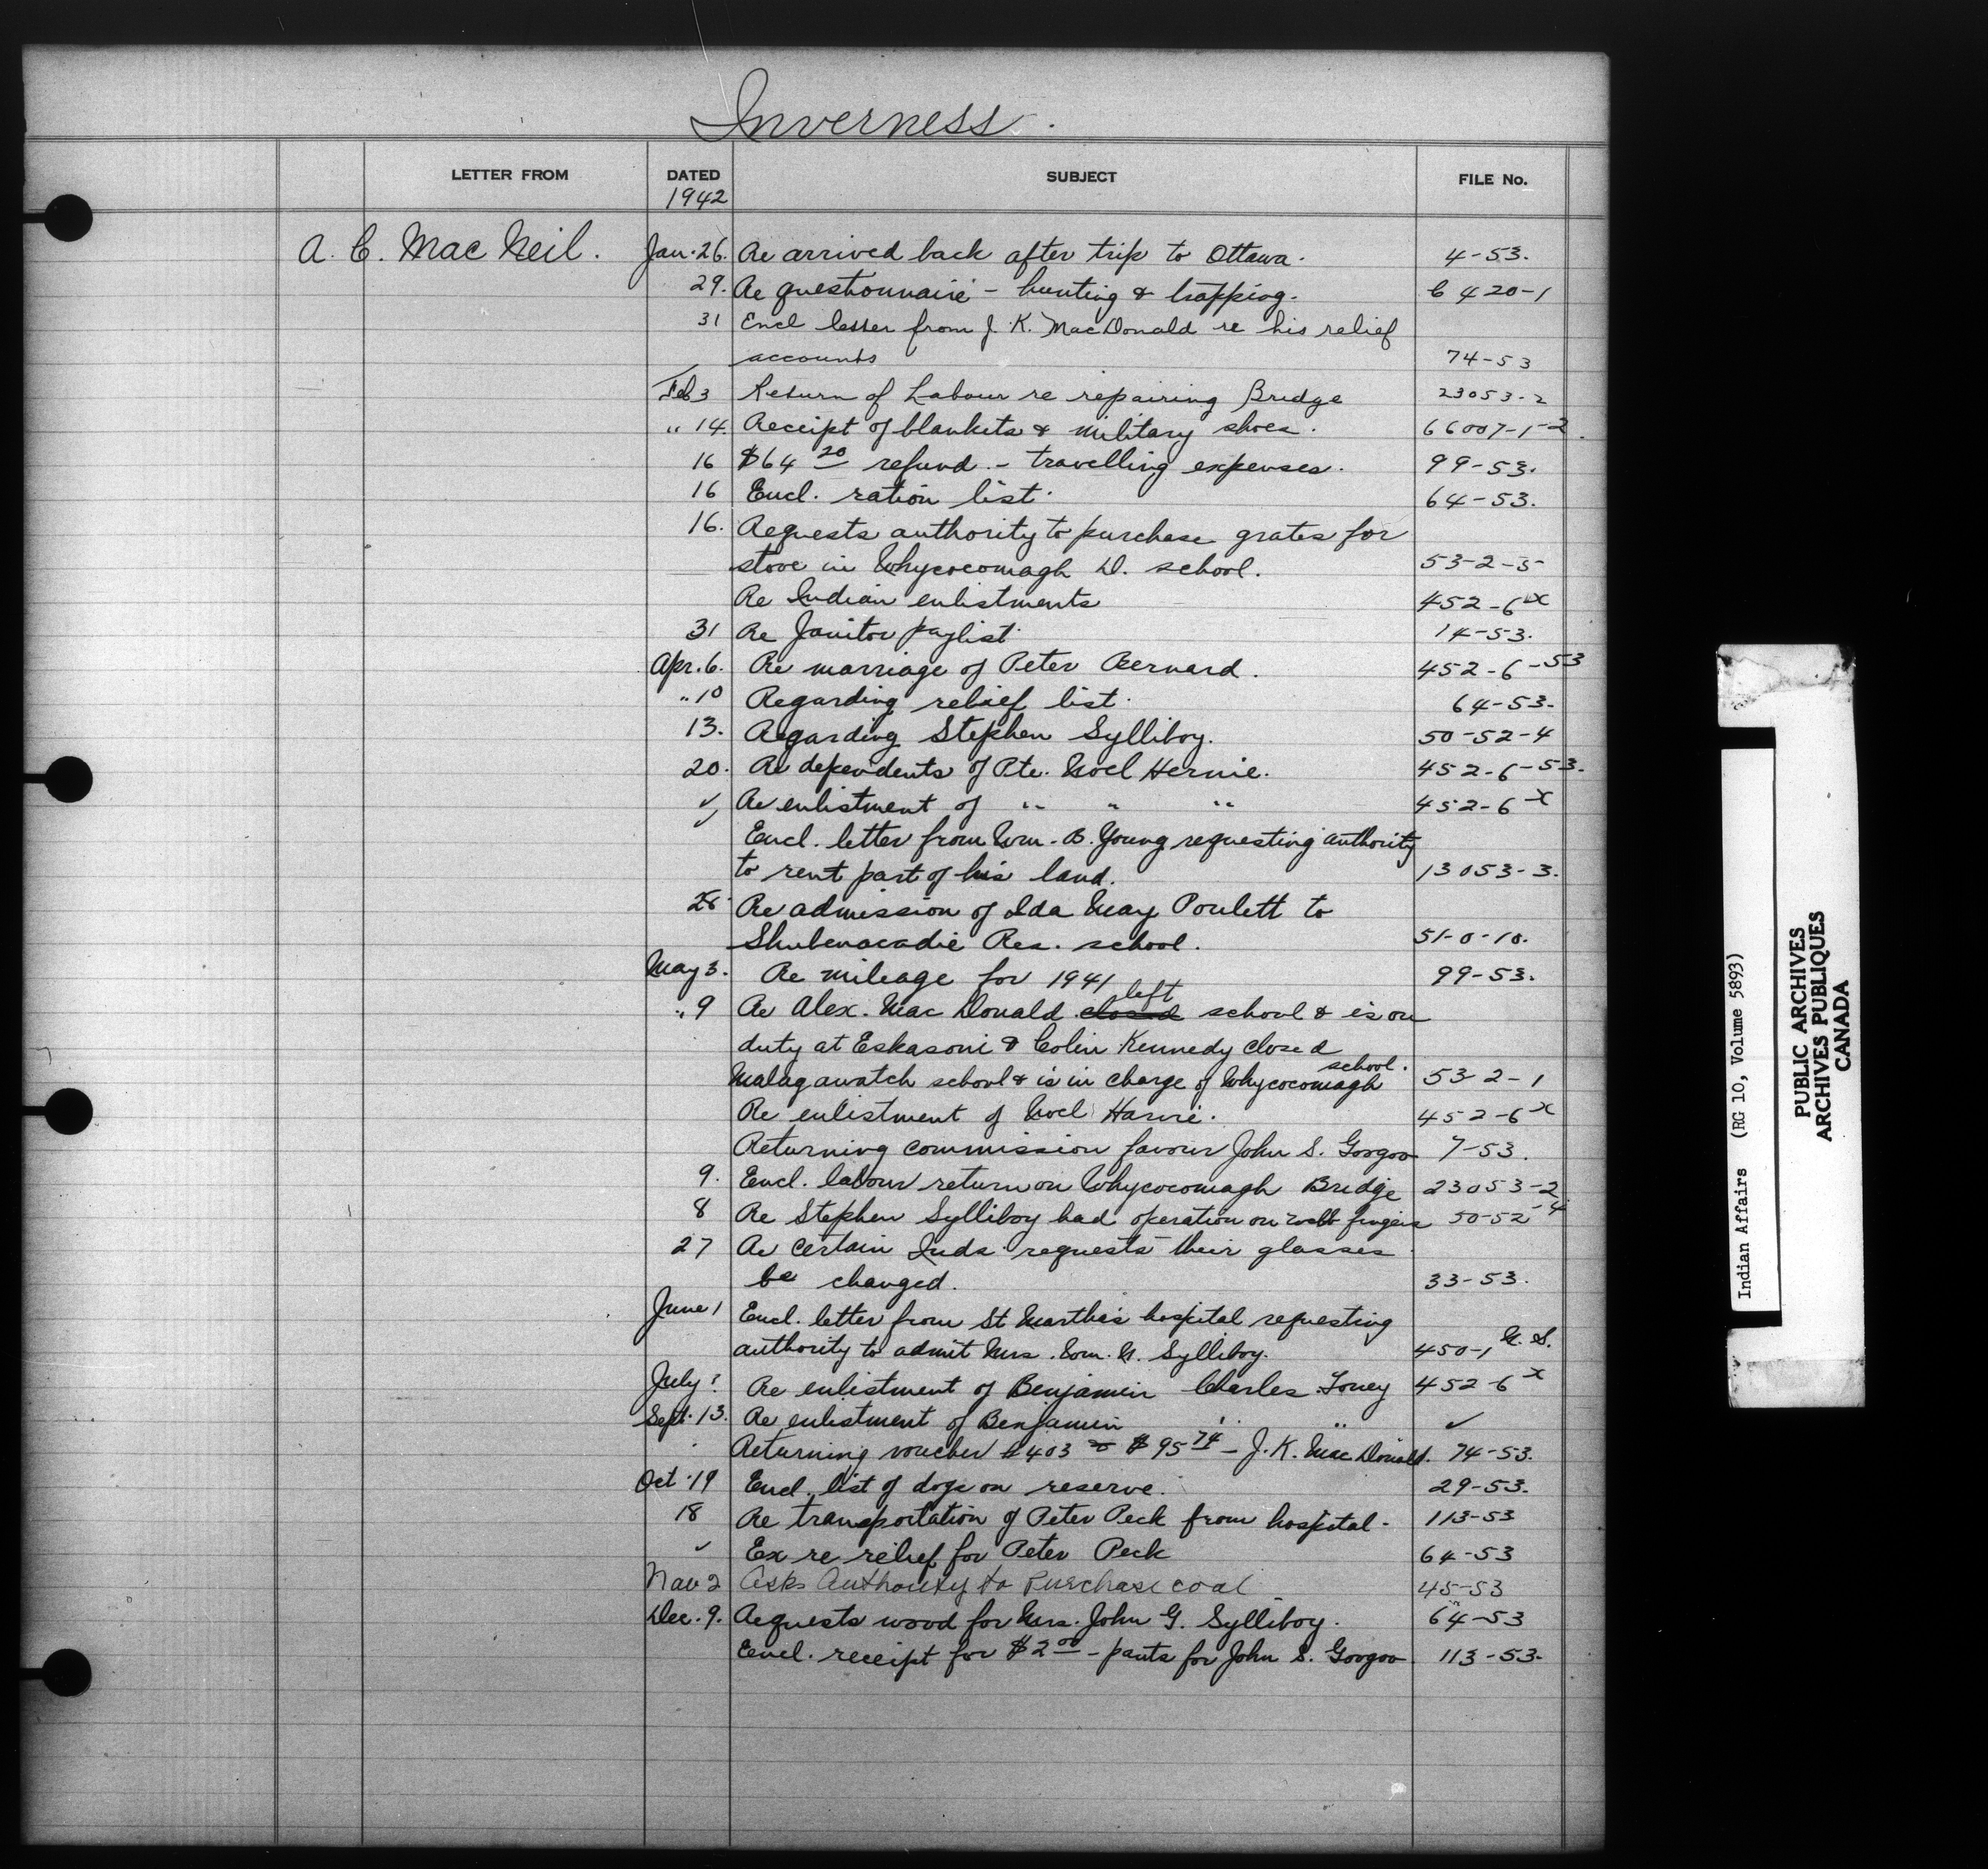 Inverness.
LETTER FROM DATED SUBJECT FILE No.
1942
A. C. MacNeil. Jan. 26. Re arrived back after trip to Ottawa. 4-53.
29. Re questionnaire - hunting & trapping. C 420-1
31 Encl letter from J. K. MacDonald re his relief
accounts 74-53
Feb 3 Return of Labour re repairing Bridge 23053-2
" 14. Receipt of blankets & military shoes. 66007-1-2.
16 $64 20 refund - travelling expenses. 99-53.
16 Encl. ration list. 64-53.
16. Requests authority to purchase grates for
stove in Whycocomagh D. school. 53-2-5
Re Indian enlistments 452-6 x
31 Re Janitor paylist. 14-53.
Apr. 6. Re marriage of Peter Bernard. 452-6-53
" 10 Regarding relief list. 64-53.
13. Regarding Stephen Sylliboy. 50-52-4
20. Re dependents of Pte. Noel Hernie. 452-6-53.
✓ Re enlistment of " " " 452-6 x
✓ Encl. letter from Wm. B. Young requesting authority
to rent part of his land. 13053-3.
28 Re admission of Ida May Poulett to
Shubenacadie Res. school. 51-0-10.
May 3. Re mileage for 1941 99-53.
" 9 Re Alex. MacDonald closed left school & is on
duty at Eskasoni & Colin Kennedy closed
Malagawatch school & is in charge of Whycocomagh school. 53-2-1
Re enlistment of Noel Harnie. 452-6 x
Returning commission favour John S. Googoo 7-53.
9. Encl. labour return on Whycocomagh Bridge 23053-2
8 Re Stephen Sylliboy had operation on fingers 50-52-4
27 Re certain Inds. requests their glasses
be changed. 33-53.
June 1 Encl. letter from St Martha's hospital requesting
authority to admit Mrs. Wm. N. Sylliboy. 450-1 N. S.
July ? Re enlistment of Benjamin Charles Toney 452-6 x
Sept. 13. Re enlistment of Benjamin " " ✓
Returning voucher #403 $95 74 - J. K. MacDonald. 74-53.
Oct. 19 Encl. list of dogs on reserve. 29-53.
18 Re transportation of Peter Peck from hospital - 113-53
✓ Ex re relief for Peter Peck 64-53
Nov 2 Asks Authority to Purchase coal 45-53
Dec. 9. Requests wood for Mrs. John G. Sylliboy. 64-53
Encl. receipt for $2 00 - pants for John S. Googoo 113-53.
Indian Affairs (RG 10, Volume 5893)
PUBLIC ARCHIVES
ARCHIVES PUBLIQUES
CANADA